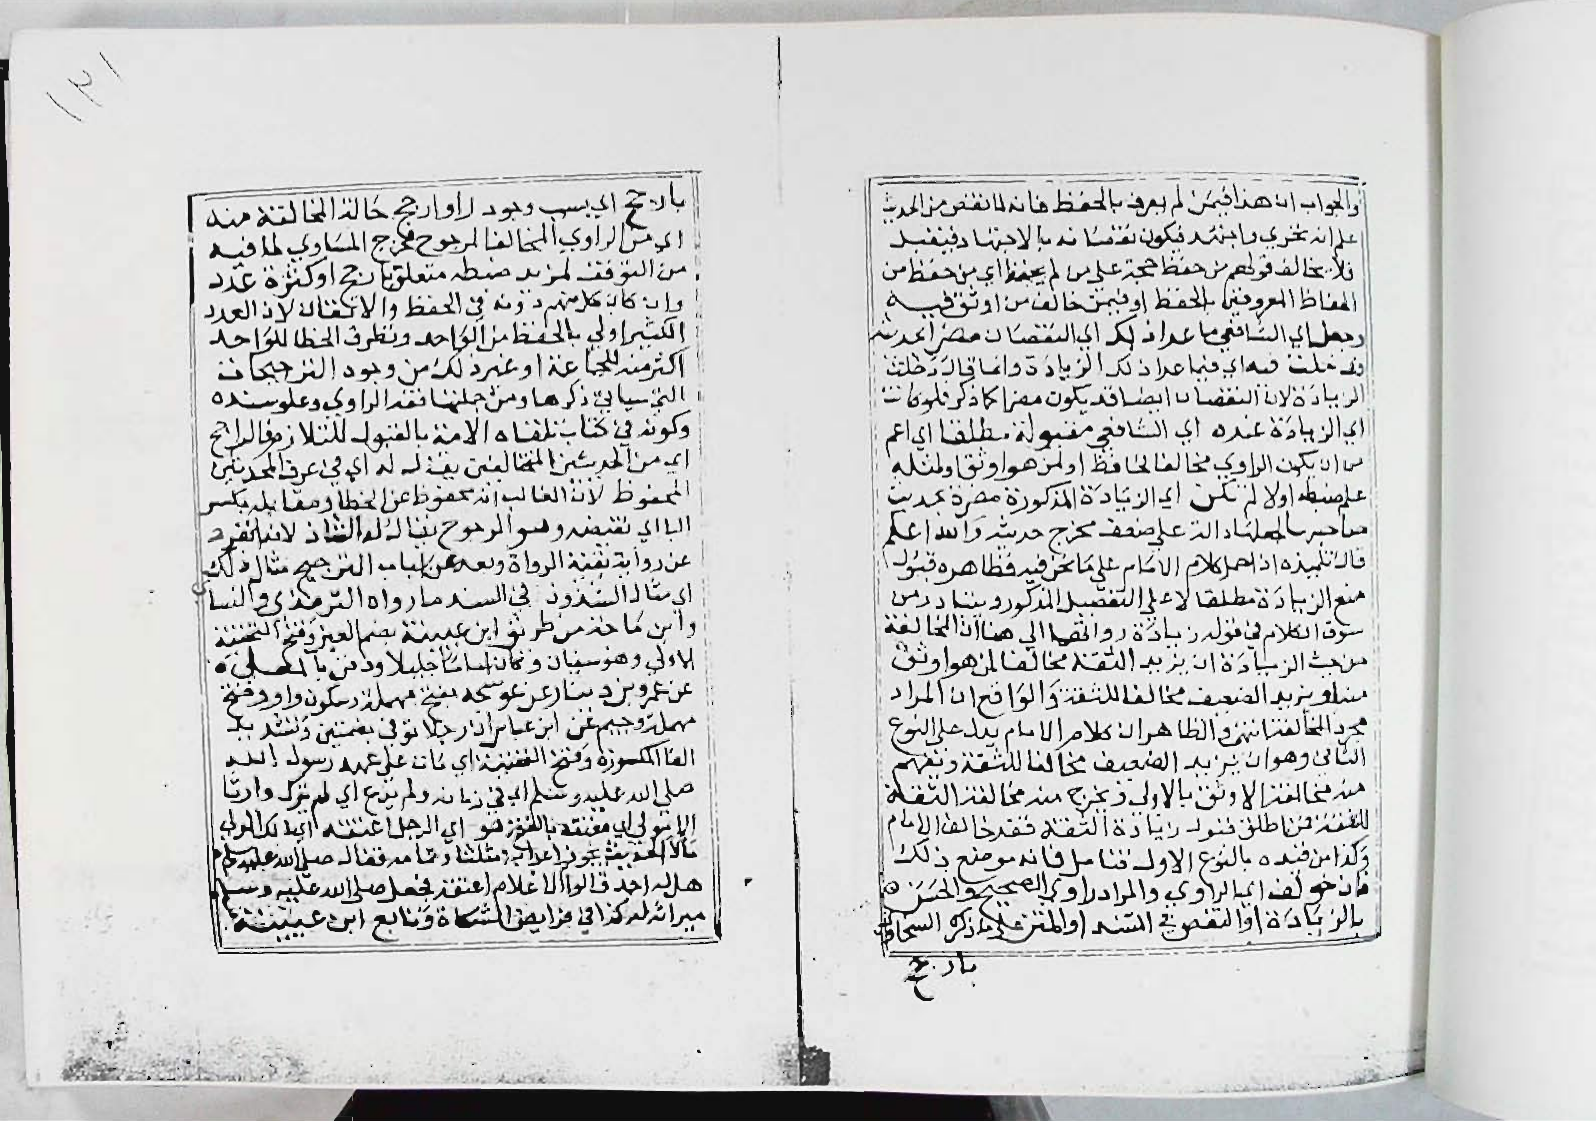 والجواب ان هذا فيمن لم يعرف بالحفظ فانه لما نقص من الحديث
علم انه تحري واجتهد فيكون نقصانه بالاجتهاد فيقبل
فلا يخالف قولهم من حفظ حجة على من لم يحفظ اي من حفظ من
الحفاظ المعروفين بالحفظ او فيمن خالف من اوثق فيه
وجعل اي الشافعي ما عدا ذلك اي النقصان مضرا بحديثه
فدخلت فيه اي فيما عدا ذلك الزيادة وانما قال دخلت
الزيادة لان النقصان ايضا قد يكون مضرا كما ذكر فلو كانت
اي الزيادة عنده اي الشافعي مقبولة مطلقا اي اعم
من ان يكون الراوي مخالفا لحافظ او لمن هو اوثق او لمثله
علم ضبطه اولا لم تكن اي الزيادة المذكورة مضرة بحديث
صاحبها دالة على ضعف مخرج حديثه والله اعلم
قال تلميذه اذا حمل كلام الامام على ما نحن فيه فظاهره قبول
منع الزيادة مطلقا لا على التفصيل المذكور ويتبادر من
سوق الكلام في قوله زيادة رواتهما الى هنا ان المخالفة
من حيث الزيادة ان يزيد الثقة مخالفا لمن هو اوثق
منه او يزيد الضعيف مخالفا للثقة والواقع ان المراد
مجرد المخالفة انتهى والظاهر ان كلام الامام يدل على النوع
الثاني وهو ان يزيد الضعيف مخالفا للثقة ويفهم
منه مخالفة الاوثق بالاولى فيخرج منه مخالفة الثقة
للثقة فمن اطلق قبول زيادة الثقة فقد خالف الامام
وكذا من قيده بالنوع الاول فتامل فانه موضع ذلك
فان خولف اي الراوي والمراد راوي الصحيح والحسن
بالزيادة او النقص في السند او المتن على ما ذكره السخاوي
بارجح
١٣١
بارجح اي بسبب وجود راو ارجح حالة المخالفة منه
اي من الراوي المخالف المرجوح فخرج المساوي لما فيه
من التوقف لمزيد ضبط متعلق بارجح او كثرة عدد
وان كان كل منهم دونه في الحفظ والاتقان لان العدد
الكثير اولى بالحفظ من الواحد وتطرق الخطا للواحد
اكثر منه للجماعة او غير ذلك من وجود الترجيحات
التي سياتي ذكرها ومن جملتها فقه الراوي وعلو سنده
وكونه في كتاب تلقاه الامة بالقبول فالراجح
اي من الحديثين المتخالفين يقال له اي في عرف المحدثين
المحفوظ لان الغالب انه محفوظ عن الخطا ومقابله بكسر
البا اي نقيضه وهو المرجوح يقال له الشاذ لانه انفرد
عن رواية بقية الرواة وبعد عن اسباب الترجيح مثال ذلك
اي مثال الشذوذ في السند ما رواه الترمذي والنسائي
وابن ماجه من طريق ابن عيينة بضم العين وفتح التحتية
الاولى وهو سفيان وكان اماما جليلا ودفن بالمعلى
عن عمرو بن دينار عن عوسجة بفتح مهملة وسكون واو وفتح
مهملة وجيم عن ابن عباس ان رجلا توفى بضمتين وتشديد
الفا المكسورة وفتح التحتية اي مات على عهد رسول الله
صلى الله عليه وسلم اي في زمانه ولم يدع اي لم يترك وارثا
الا مولى اي معتقه بالفتح هو اي الرجل اعتقه اي ذلك المولى
صلى الله عليه وسلم
هل له احد قالوا الا غلام اعتقه فجعل صلى الله عليه وسلم
ميراثه له كذا في فرايض المشكاة وتابع ابن عيينة